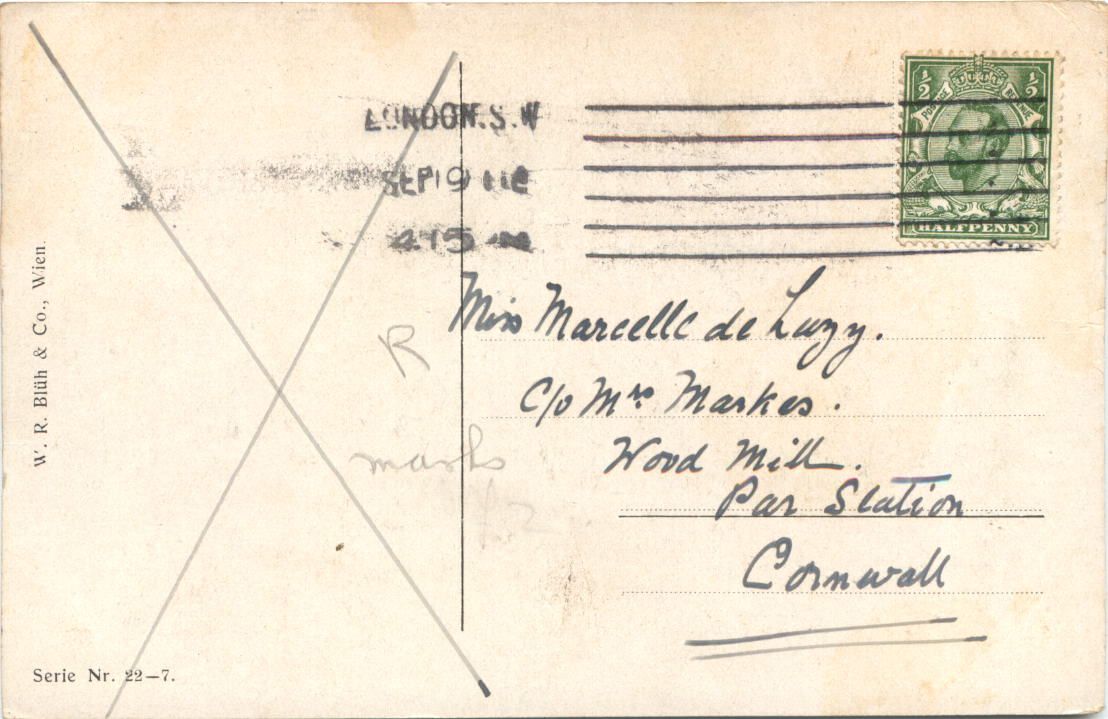 LONDON.S.W
SEP 19 12
4.15
½ ½
POSTAGE REVENUE
HALFPENNY
Miss Marcelle de Luzy.
C/o Mrs Markes.
Wood Mill.
Par Station
Cornwall
R
marks
W. R. Blüh & Co., Wien.
Serie Nr. 22—7.